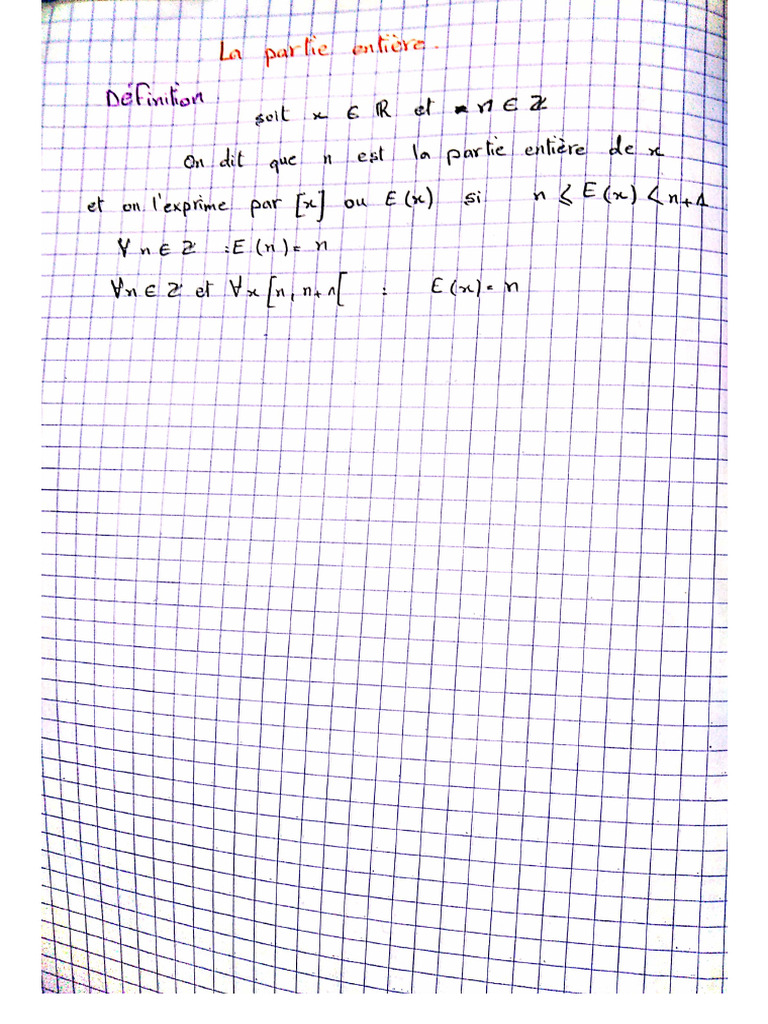 La partie entière.
Définition
soit x ∈ ℝ et n ∈ ℤ
On dit que n est la partie entière de x
et on l'exprime par [x] ou E(x) si n ⩽ E(x) < n+1
∀ n ∈ ℤ : E(n) = n
∀n ∈ ℤ et ∀x [n, n+1[ : E(x) = n